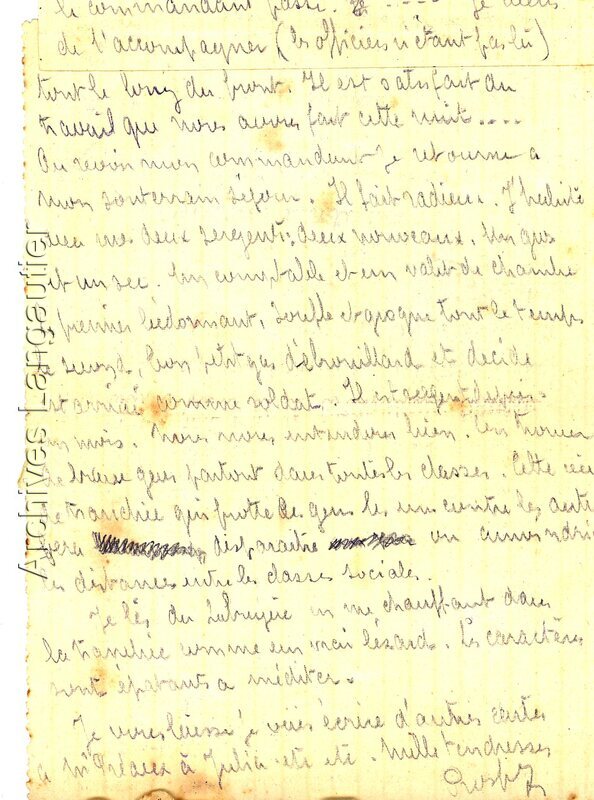 le commandant passe. .... Je viens
de l'accompagner (les officiers n'étant pas là)
tout le long du front. Il est satisfait du
travail que nous avons fait cette nuit....
Au revoir mon commandant je retourne a
mon souterrain séjour. Il fait radieux. J'habite
avec mes deux sergents, deux nouveaux. Un gros
et un sec. Un comptable et un valet de chambre
premier bedonnant, souffle et tout le temps
le second, bon petit gas débrouillard et décidé
est arrivé comme soldat. Il est sergent depuis
un mois. Nous nous entendons bien. On trouve
de braves gens partout dans toutes les classes. Cette vie
de tranchée qui frotte les gens les uns contre les autres
fera disparaitre ou amoindrir
les distances entre les classes sociales.
Je lis du Labruyère en me chauffant dans
la tranchée comme un vrai lézard. Les caractères
sont épatants a méditer.
Je vous laisse je vais écrire d'autres cartes
a Mr à Julia etc etc. Mille tendresses
Archives Lapautier